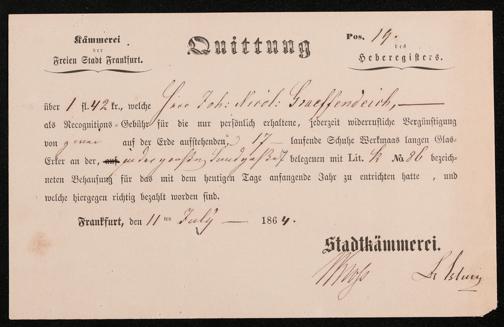 Kämmerei
der
Freien Stadt Frankfurt.
Quittung
Pos. 19.
des
Heberegisters.
über 1 fl. 42 kr., welche Herr Joh: Nicol: Graeffendeich, —
als Recognitions-Gebühr für die nur persönlich erhaltene, jederzeit widerrufliche Vergünstigung
von zwei auf der Erde aufstehenden, 17 — laufende Schuhe Werkmaas langen Glas-
Erker an der, auf in der großen Sandgaße belegenen mit Lit. K No 86 bezeich-
neten Behausung für das mit dem heutigen Tage anfangende Jahr zu entrichten hatte , und
welche hiergegen richtig bezahlt worden sind.
Frankfurt, den 11ten July — 1864.
Stadtkämmerei.